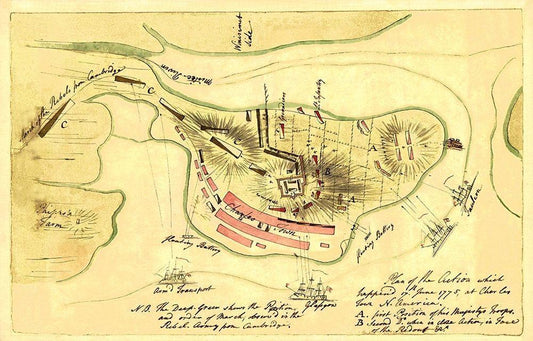 Winnimb
Side
Mistic River
March of the Rebels from Cambridge
C
C
Grenadiers
Lt. Infantry
A
A
B
Phipp's
Farm
Charles Town
Floating Battery
Floating Battery
Armd Transport
Glasgow
Plan of the Action which
happen'd 17th June 1775, at Charles
Town N. America.
A. first Position of his Majestys Troops.
B Second Do. when in the Action, in Front
of the Redout &c.
N.B. The Deep Green shews the Position
and order of March, observ'd in the
Rebel Army from Cambridge.